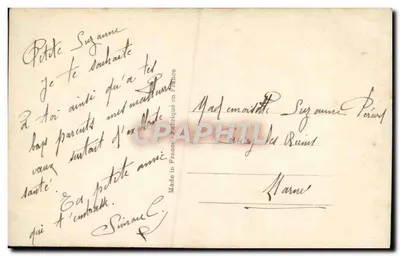 Petite Suzanne
Je te souhaite
à toi ainsi qu'à tes
parents mes meilleurs
vœux surtout
santé.
Ta petite amie
qui t'embrasse.
Simone C.
Made in France - Fabriqué en France
Mademoiselle Suzanne
les Reims
Marne
CPHARTICOM